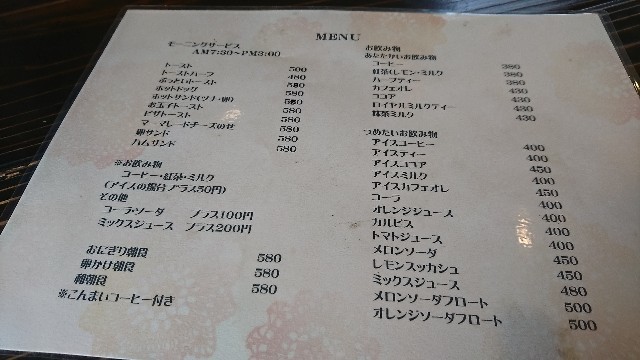 MENU
モーニングサービス
AM7:30〜PM3:00
トースト 500
トーストハーフ 480
ホットドッグ 580
ホットサンド(ツナ・卵) 580
お玉子トースト 580
ピザトースト 580
マーマレードチーズのせ 580
卵サンド 580
ハムサンド 580
※お飲み物
コーヒー・紅茶・ミルク
(アイスの場合プラス50円)
その他
コーラ・ソーダ プラス100円
ミックスジュース プラス200円
おにぎり朝食 580
卵かけ朝食 580
朝食 580
※こんまいコーヒー付き
お飲み物
あたたかいお飲み物
コーヒー 380
紅茶(レモン・ミルク 380
ハーブティー 380
カフェオレ 430
ココア 430
ロイヤルミルクティー 430
抹茶ミルク 430
つめたいお飲み物
アイスコーヒー 400
アイスティー 400
アイスココア 450
アイスミルク 400
アイスカフェオレ 450
コーラ 400
オレンジジュース 400
カルピス 400
トマトジュース 400
メロンソーダ 400
レモンスカッシュ 450
ミックスジュース 480
メロンソーダフロート 500
オレンジソーダフロート 500